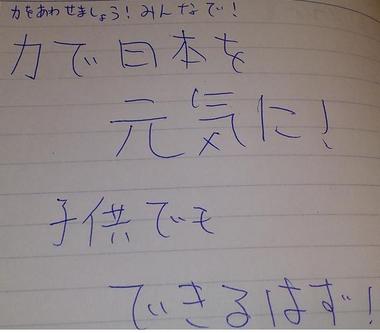 力をあわせましょう！みんなで！
力で日本を
元気に！
子供でも
できるはず！